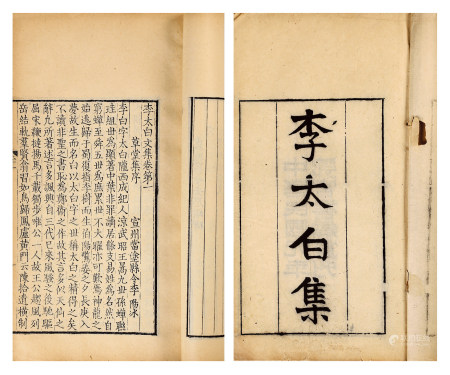 李太白集
李太白文集卷第一
草堂集序
宣州當塗縣令李陽冰
李白字太白隴西成紀人涼武昭王暠九世孫蟬聯
珪組世為顯著中葉非罪謫居條支易姓為名然自
窮蟬至舜五世為庶累世不大曜亦可歎焉神龍之
始逃歸于蜀復指李樹而生伯陽驚姜之夕長庚入
夢故生而名白以太白字之世稱太白之精得之矣
不讀非聖之書恥為鄭衛之作故其言多似天仙之
辭凡所著述言多諷興自三代已來風騷之後馳驅
屈宋鞭撻揚馬千載獨步唯公一人故王公趨風列
岳結軌羣賢翕習如鳥歸鳳盧黃門云陳拾遺橫制